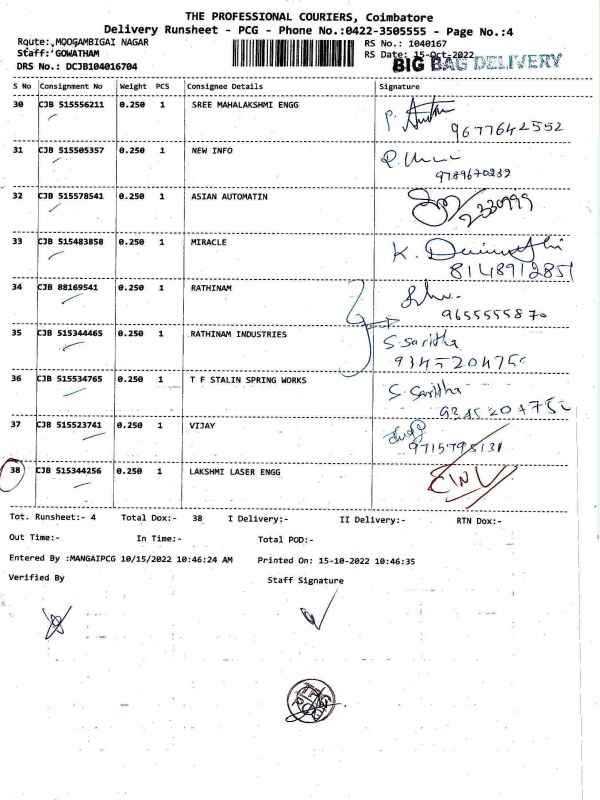 THE PROFESSIONAL COURIERS, Coimbatore
Delivery Runsheet - PCG - Phone No.:0422-3505555 - Page No.:4
Route:.MOOGAMBIGAI NAGAR
RS No.: 1040167
Staff: GOWATHAM
RS Date: 15-Oct-2022
DRS No.: DCJB104016704
BIG BAG DELIVERY
S No Consignment No Weight PCS Consignee Details Signature
30 CJB 515556211 0.250 1 SREE MAHALAKSHMI ENGG
9677642552
31 CJB 515505357 0.250 1 NEW INFO
9789670239
32 CJB 515578541 0.250 1 ASIAN AUTOMATIN
2330999
33 CJB 515483858 0.250 1 MIRACLE K.
8148912851
34 CJB 88169541 0.250 1 RATHINAM
9655555870
35 CJB 515344465 0.250 1 RATHINAM INDUSTRIES S.saritha
934520475
36 CJB 515534765 0.250 1 T F STALIN SPRING WORKS S. Saritha
37 CJB 515523741 0.250 1 VIJAY
9715795131
38 CJB 515344256 0.250 1 LAKSHMI LASER ENGG
Tot. Runsheet:- 4 Total Dox:- 38 I Delivery:- II Delivery:- RTN Dox:-
Out Time:- In Time:- Total POD:-
Entered By :MANGAIPCG 10/15/2022 10:46:24 AM Printed On: 15-10-2022 10:46:35
Verified By Staff Signature